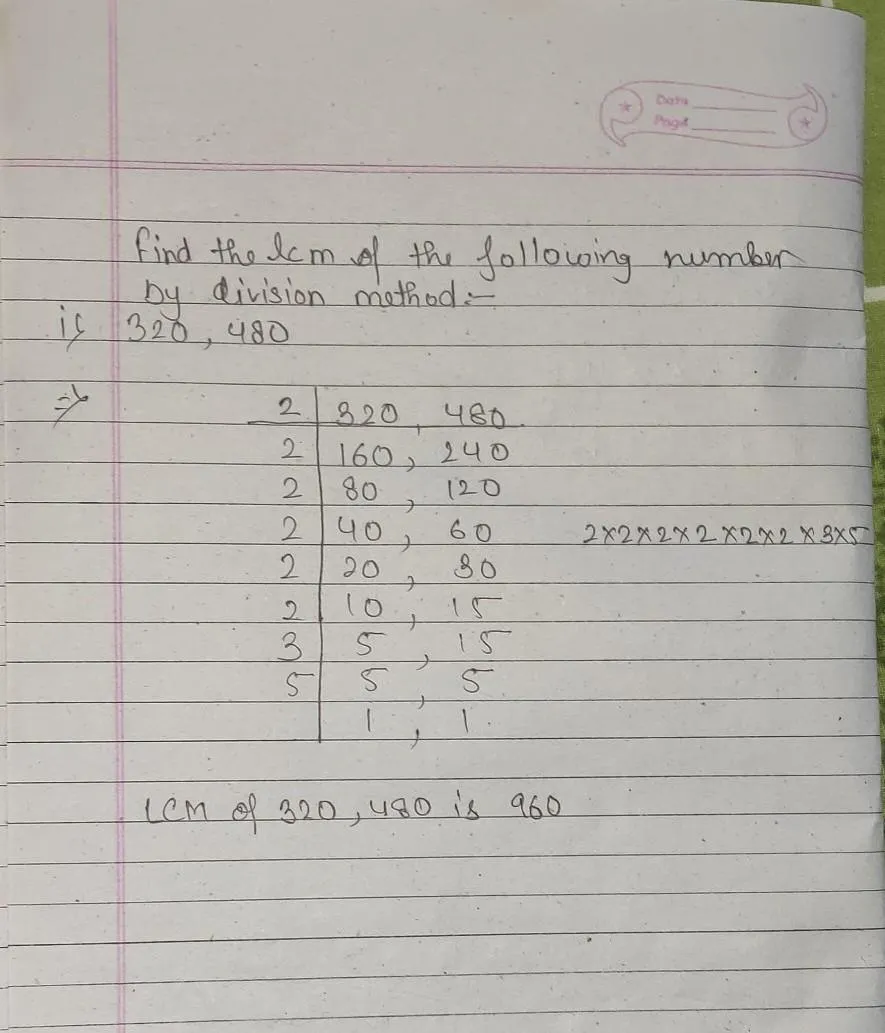 Date
Page
find the lcm of the following number
by division method:-
i) 320, 480
⇒ 2 | 320, 480
2 | 160, 240
2 | 80, 120
2 | 40, 60 2×2×2×2×2×2×3×5
2 | 20, 30
2 | 10, 15
3 | 5, 15
5 | 5, 5
1, 1
LCM of 320, 480 is 960